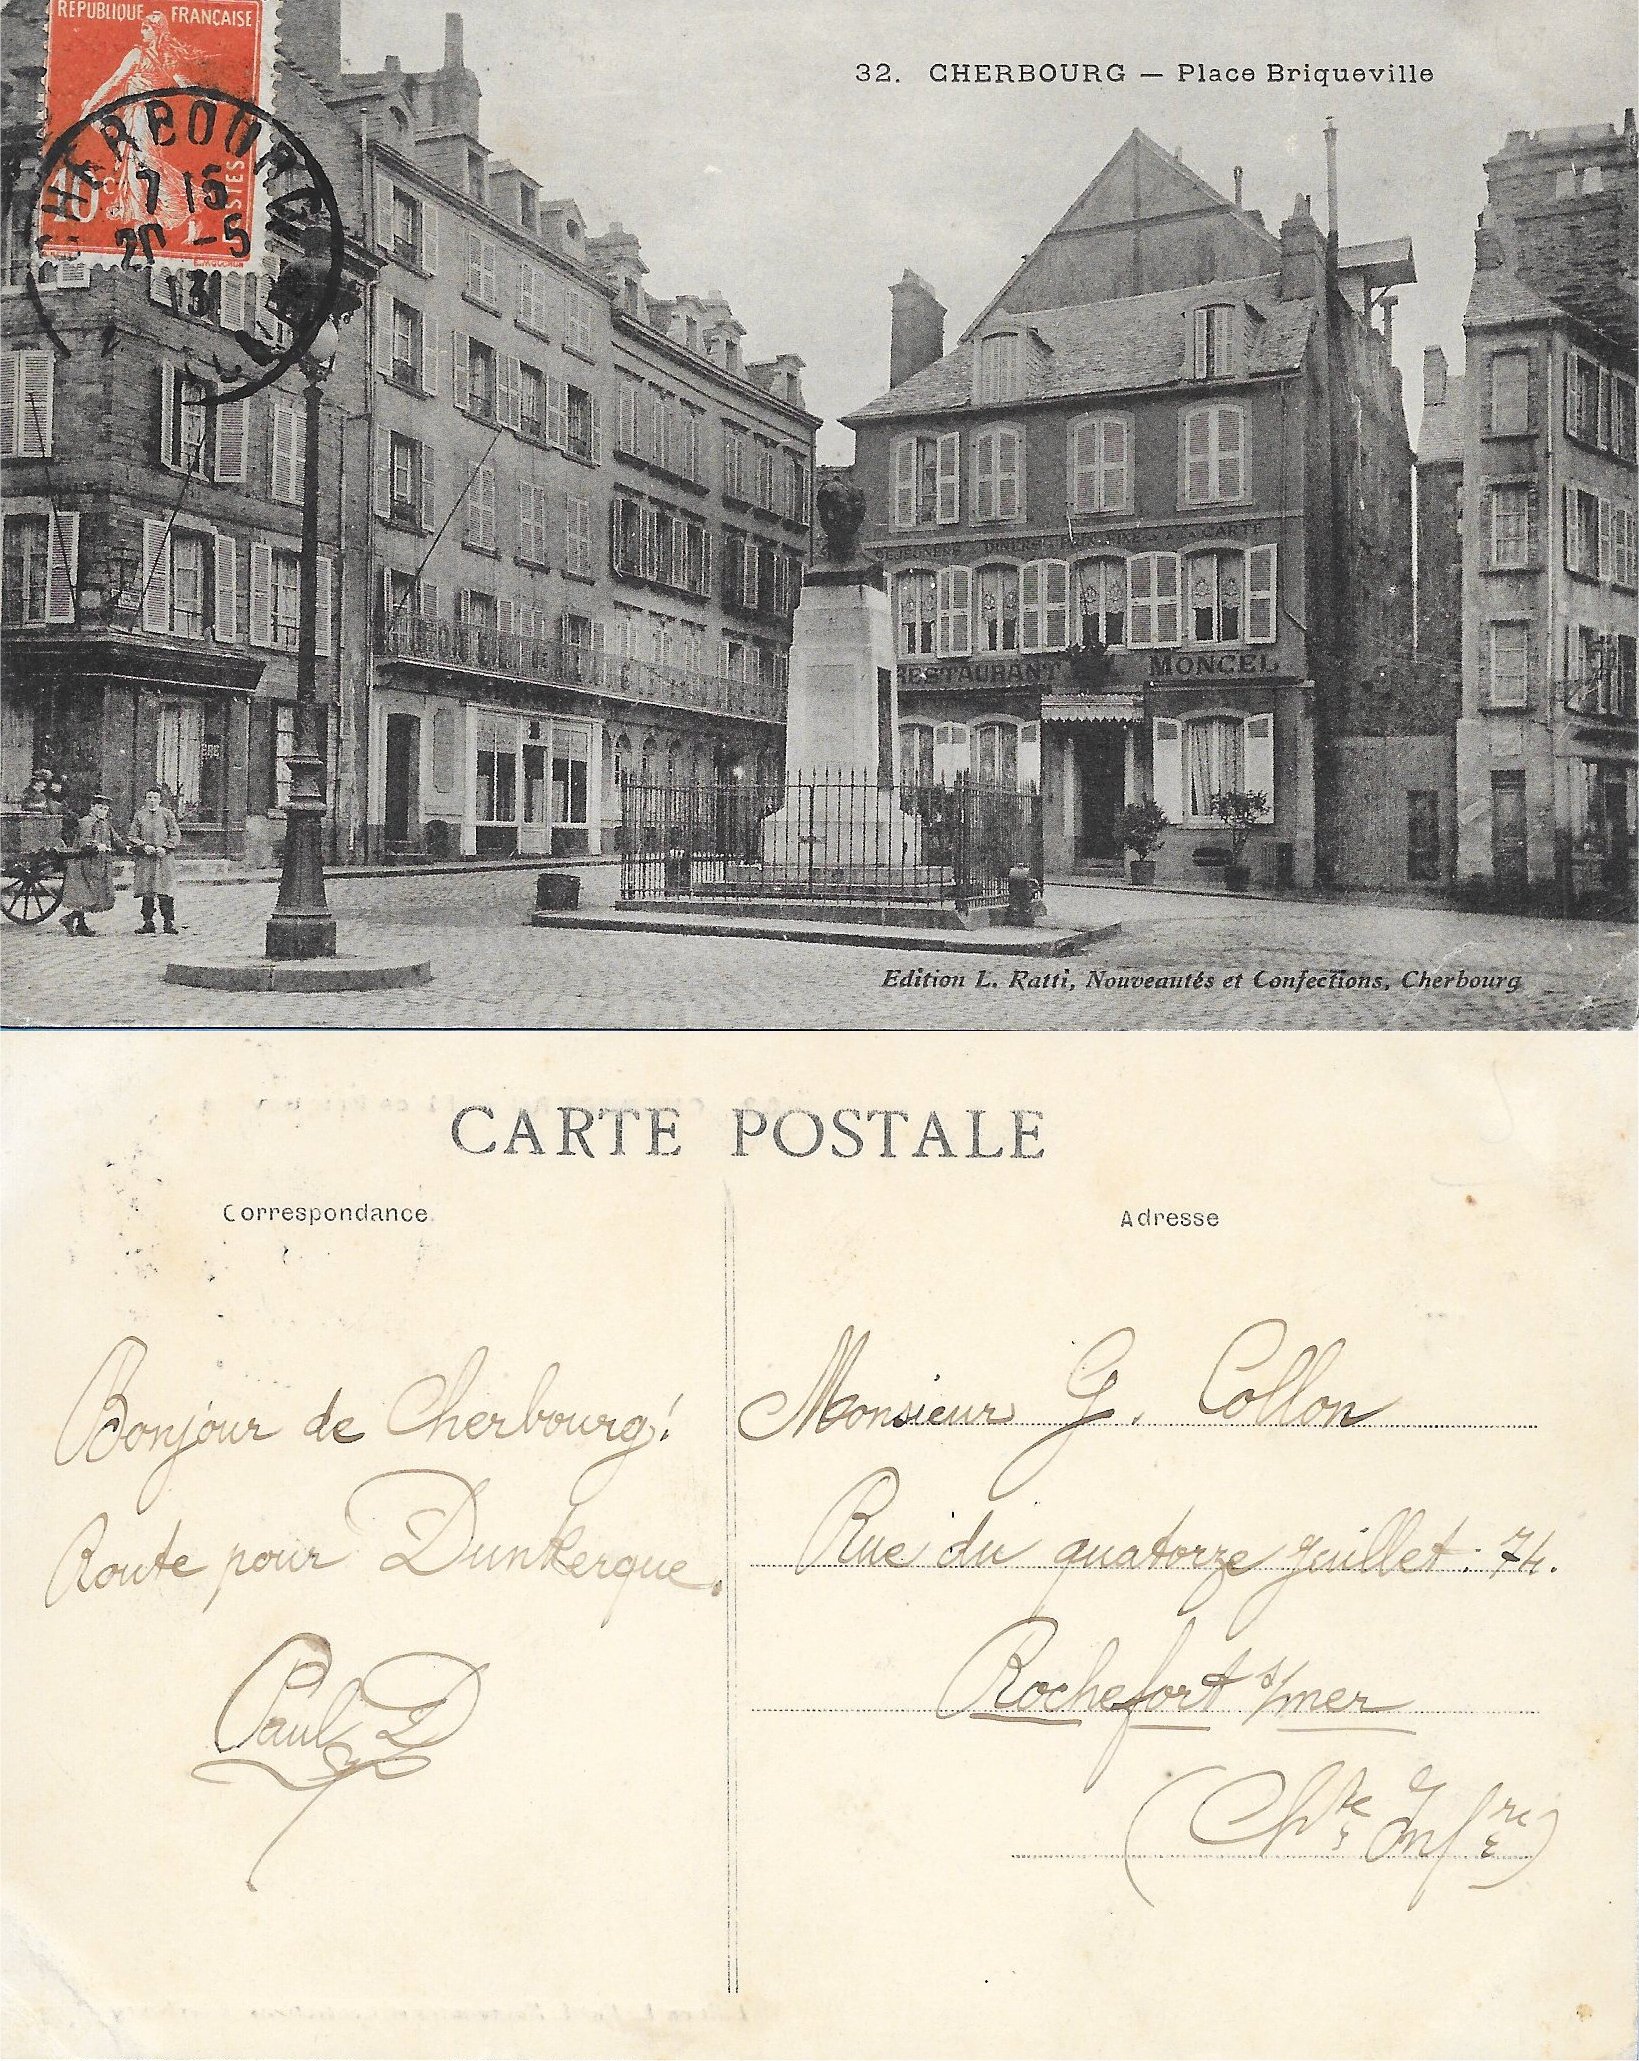 REPUBLIQUE FRANÇAISE
10 c POSTES
CHERBOURG
7 15
20 -5
13
32. CHERBOURG — Place Briqueville
DEJEUNERS DINERS A LA CARTE
RESTAURANT MONCEL
Edition L. Ratti, Nouveautés et Confections, Cherbourg
CARTE POSTALE
Correspondance
Adresse
Bonjour de Cherbourg!
Route pour Dunkerque.
Paul D
Monsieur G. Collon
Rue du quatorze Juillet: 74.
Rochefort s/mer
(Chte Infre)